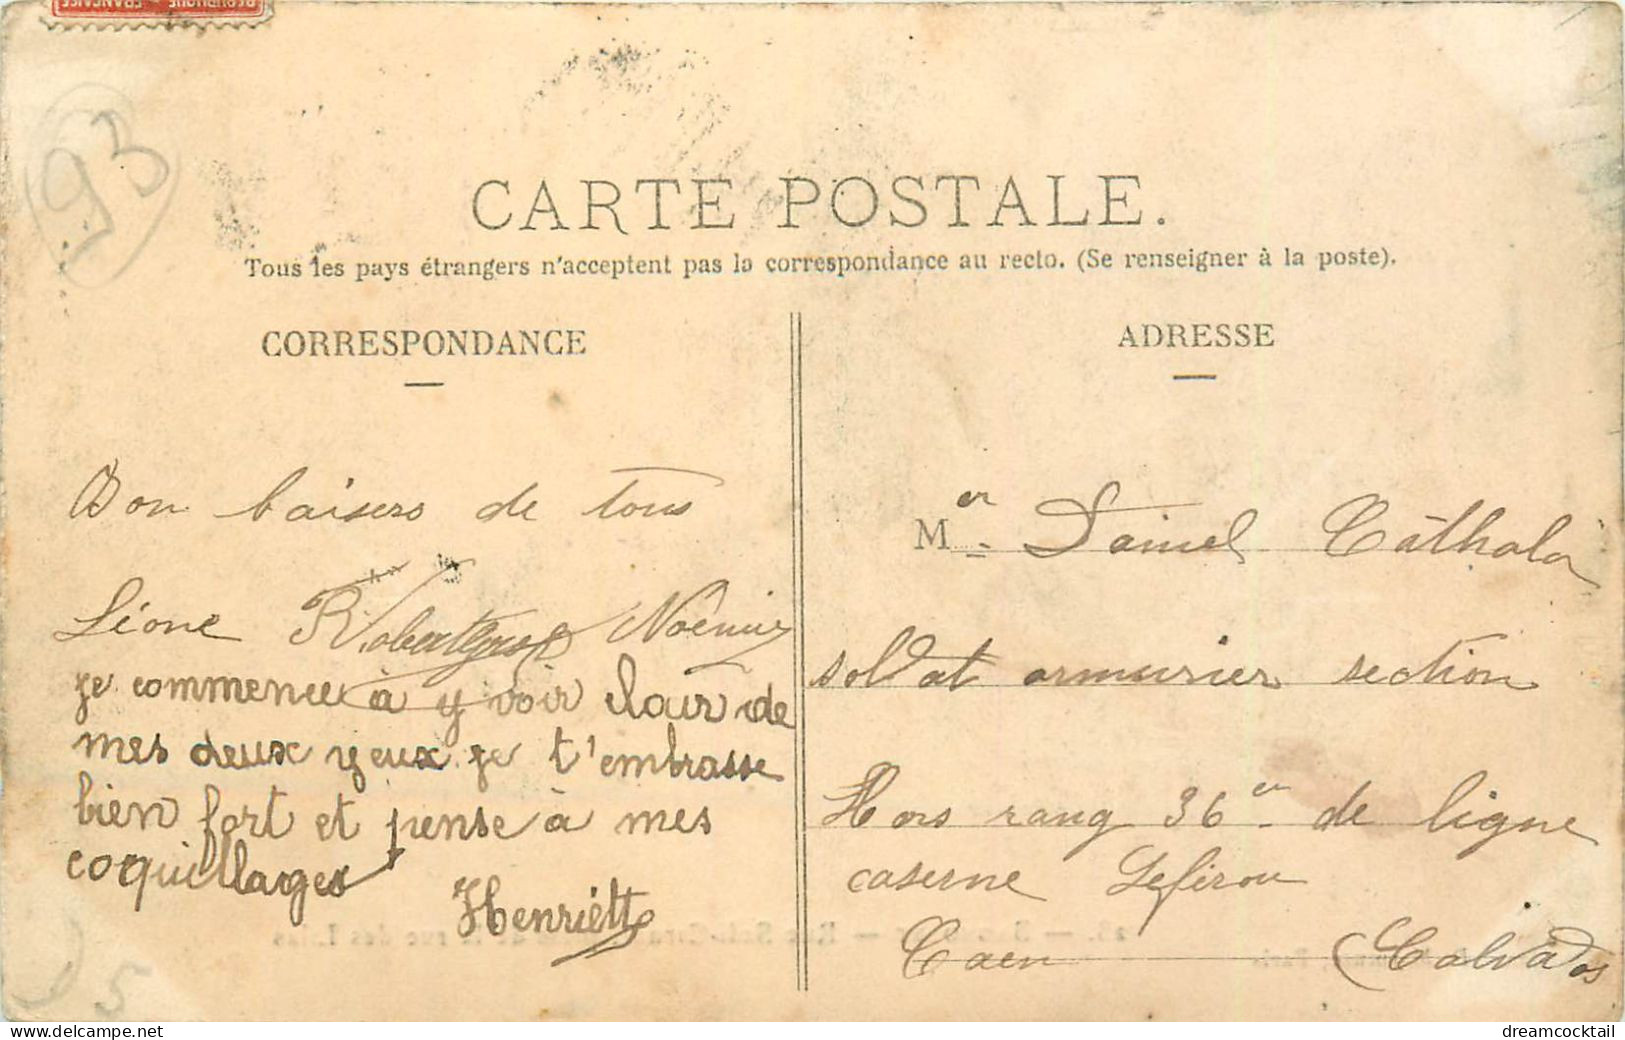 RÉPUBLIQUE FRANÇAISE
93
CARTE POSTALE.
Tous les pays étrangers n'acceptent pas la correspondance au recto. (Se renseigner à la poste).
CORRESPONDANCE
ADRESSE
Bon baisers de tous
Léone Robert Noémie
je commence à y voir clair de
mes deux yeux je t'embrasse
bien fort et pense à mes
coquillages
Henriette
Mer Daniel Cathala
soldat armurier section
Hors rang 36er de ligne
caserne Lefirou
Caen (Calvados
5
dreamcocktail